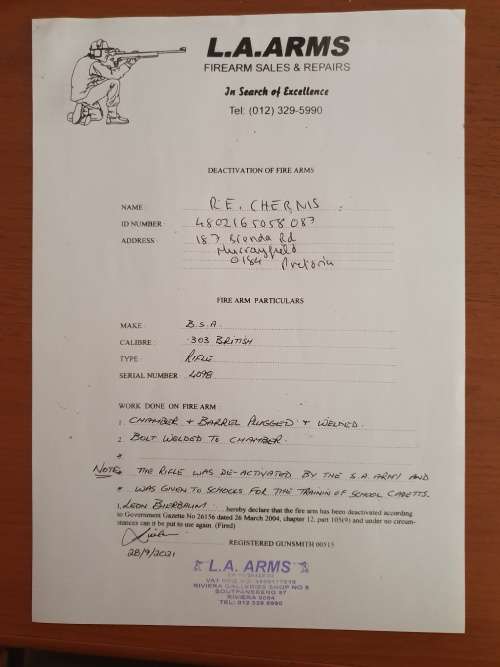 L.A.ARMS
FIREARM SALES & REPAIRS
In Search of Excellence
Tel: (012) 329-5990
DEACTIVATION OF FIRE ARMS
NAME : R.E. CHERNIS
ID NUMBER : 4802165058 087
ADDRESS : 187 Brenda Rd
Murrayfield
0184 Pretoria
FIRE ARM PARTICULARS
MAKE : B.S.A.
CALIBRE : .303 BRITISH
TYPE : RIFLE
SERIAL NUMBER : 4098
WORK DONE ON FIRE ARM :
1. CHAMBER + BARREL PLUGGED + WELDED.
2. BOLT WELDED TO CHAMBER
NOTE THE RIFLE WAS DE-ACTIVATED BY THE S.A. ARMY AND
WAS GIVEN TO SCHOOLS FOR THE TRAININ OF SCHOOL CADETTS.
I, LEON BIERBAUM hereby declare that the fire arm has been deactivated according
to Government Gazette No 26156 dated 26 March 2004, chapter 12, part 103(9) and under no circum-
stances can it be put to use again. (Fired)
REGISTERED GUNSMITH 00515
28/9/2021
L.A. ARMS
RIVIERA GALLERIES SHOP NO 5
SOUTPANSBERG 97
RIVIERA 0084
TEL: 012 329 5990